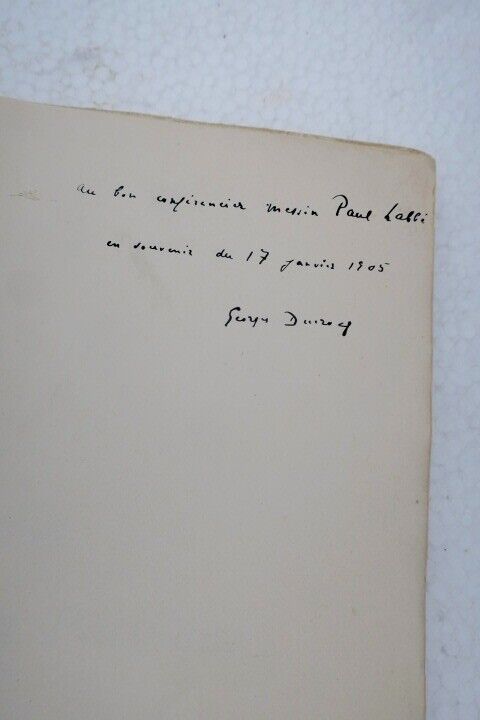 au bon conférencier messin Paul Labbé
en souvenir du 17 janvier 1905
Georges Ducrocq